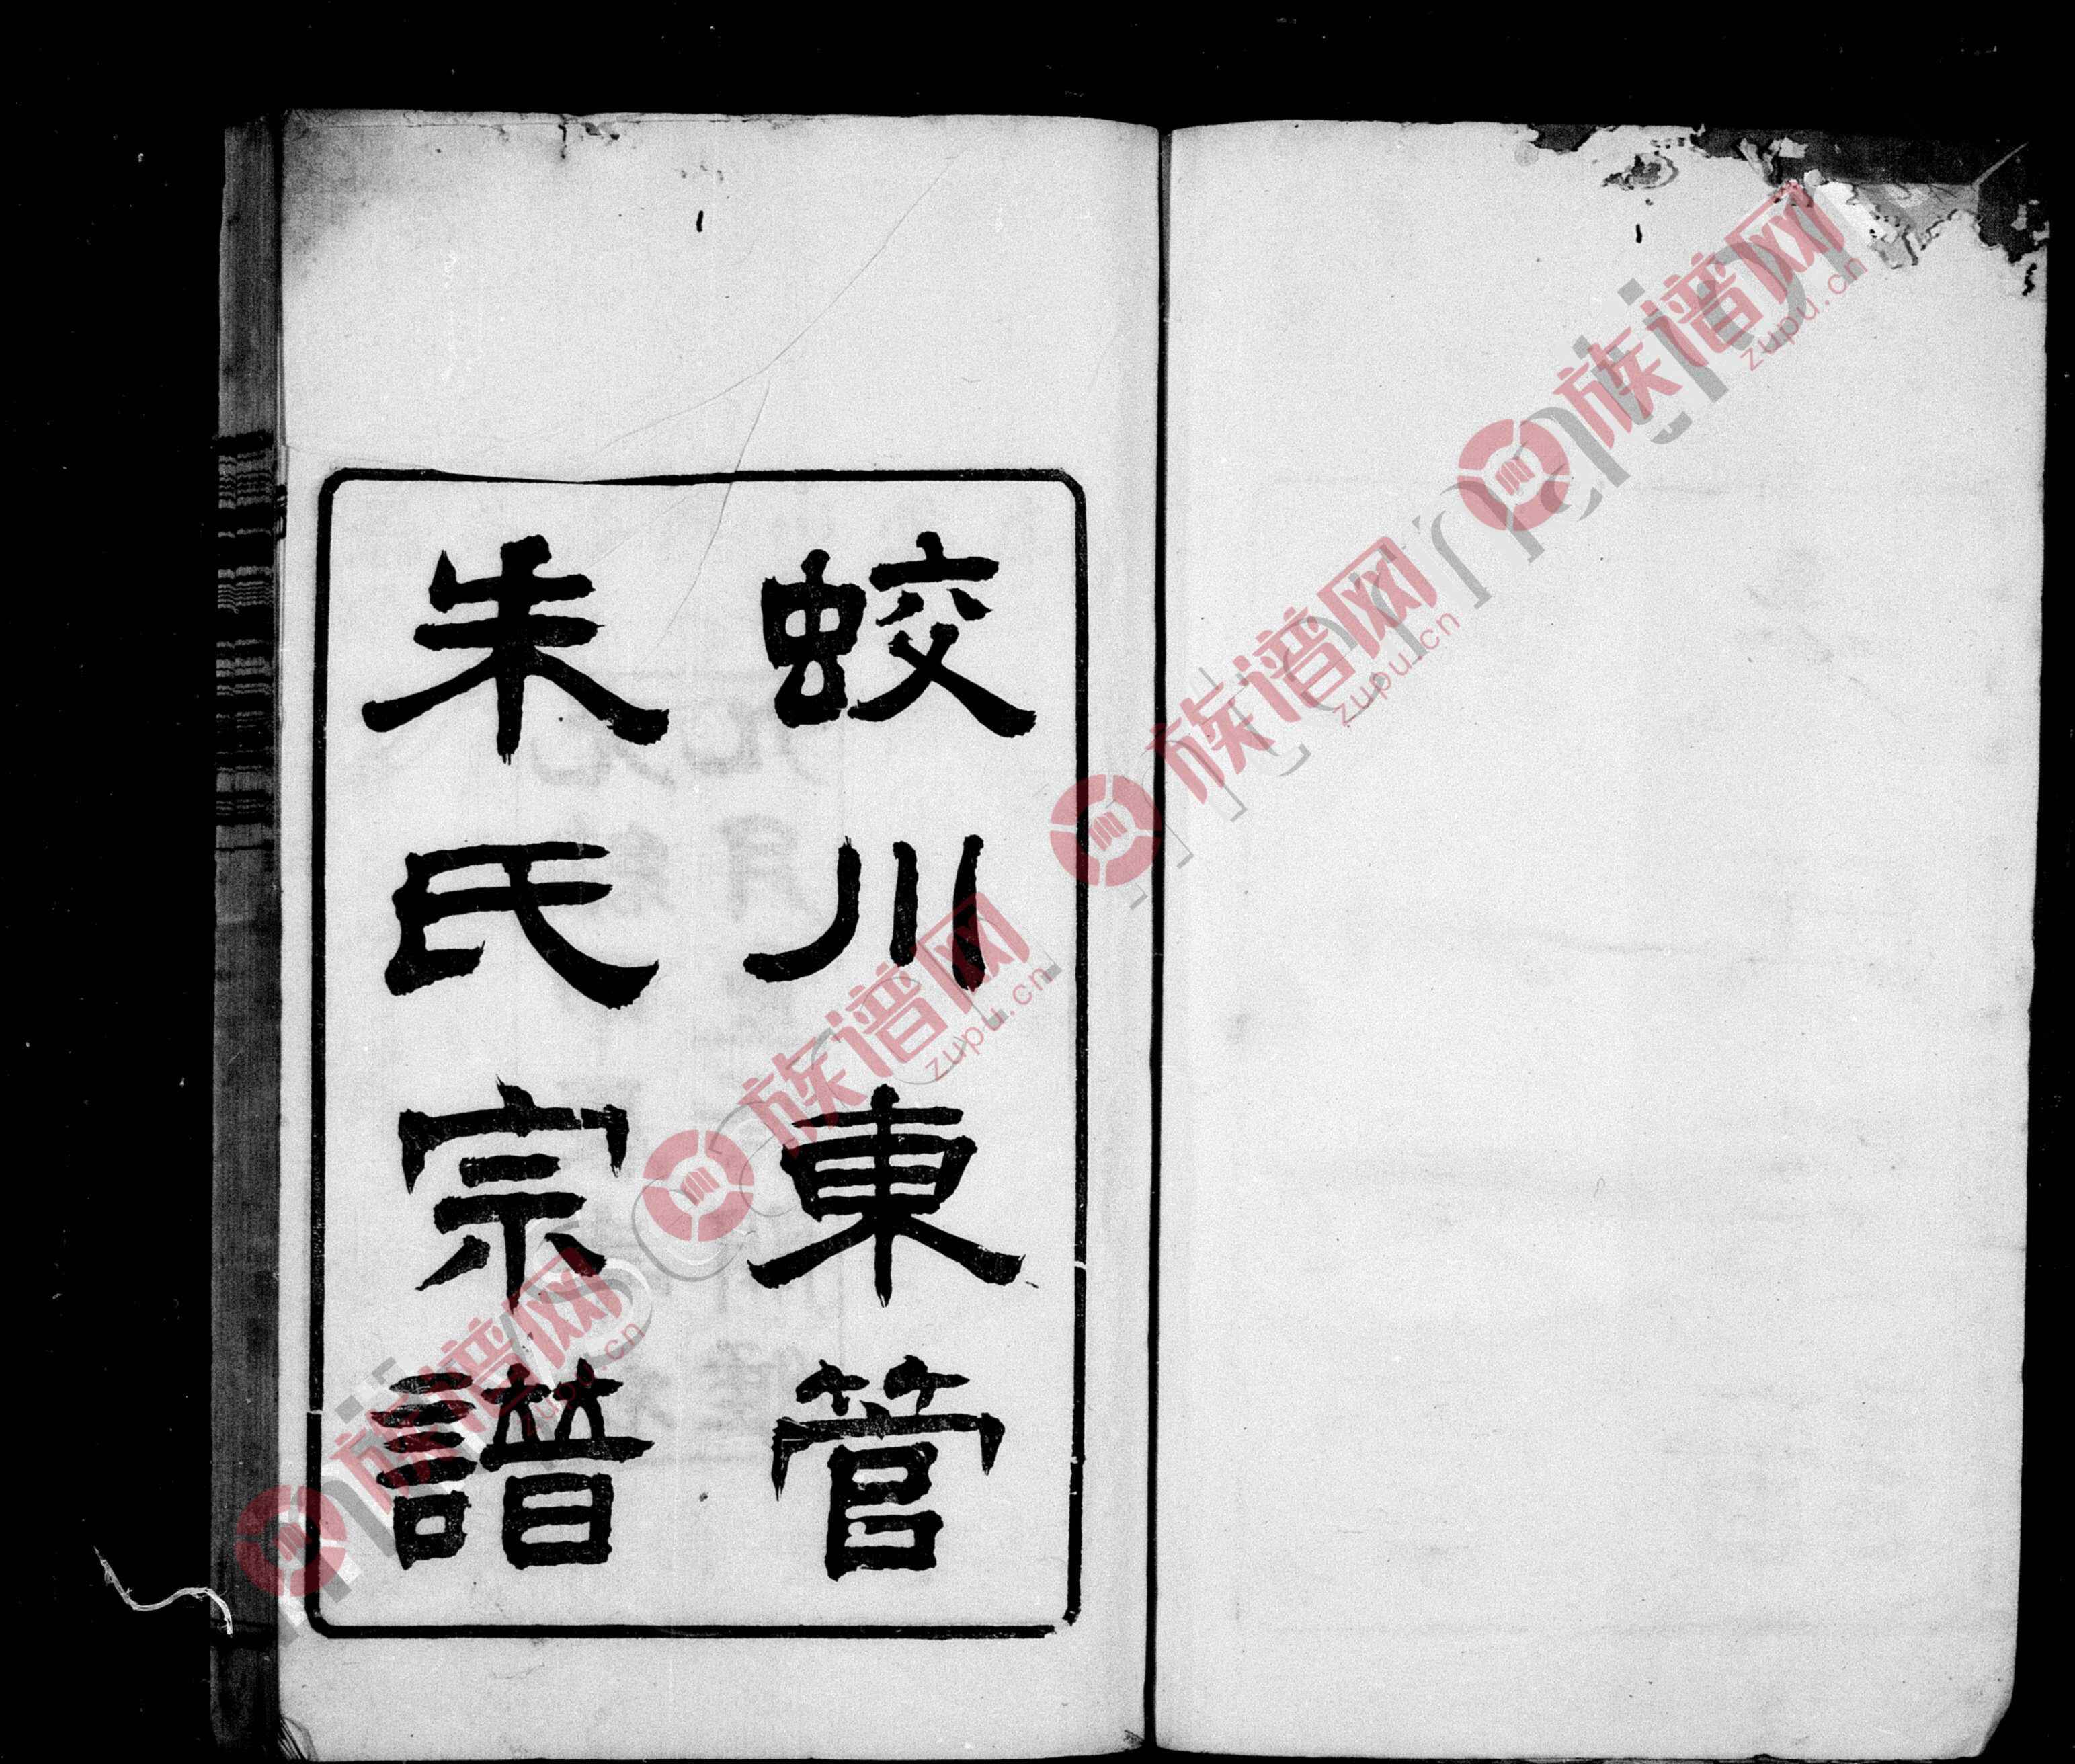 蛟川東管
朱氏宗譜
族谱网
zupu.cn
族谱网
zupu.cn
族谱网
zupu.cn
族谱网
zupu.cn